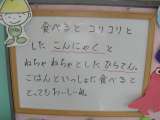 食べると コリコリと
した こんにゃく と
ねちゃねちゃとした ひらてん。
ごはんといっしょに食べると
とってもおいしーね。